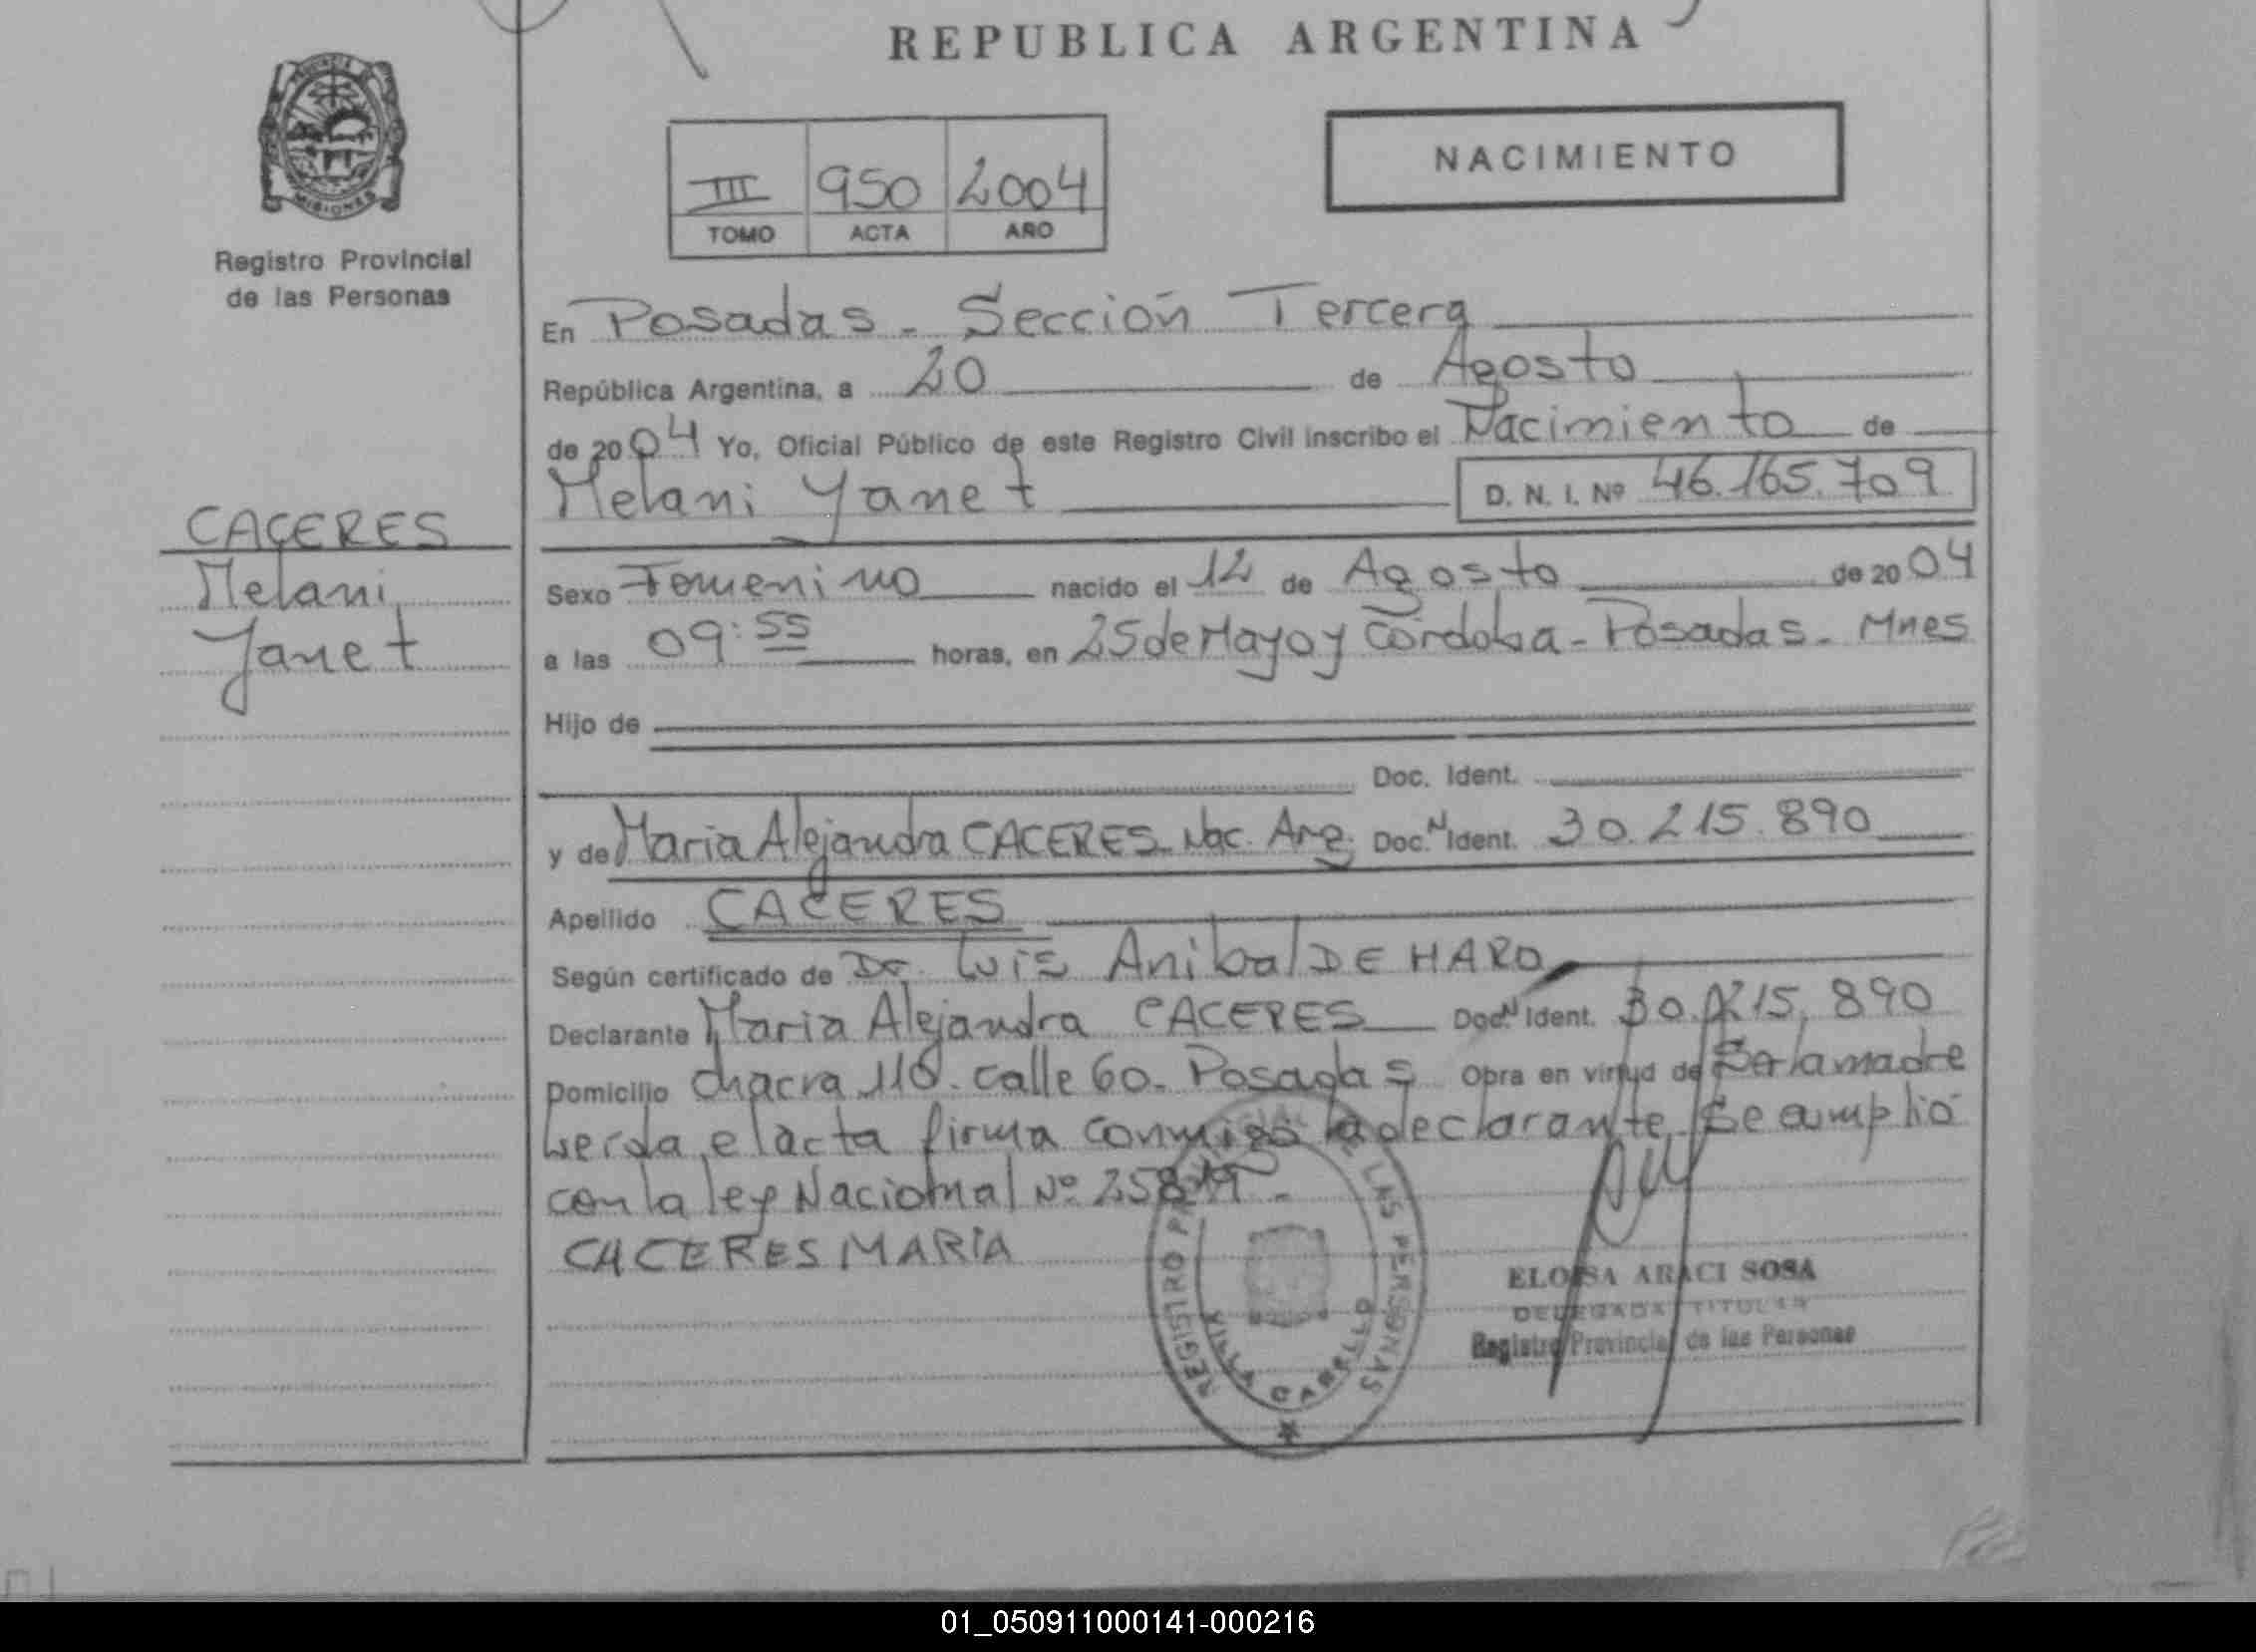 REPUBLICA ARGENTINA
PROVINCIA DE
MISIONES
Registro Provincial
de las Personas
NACIMIENTO
III 950 2004
TOMO ACTA AÑO
En Posadas - Sección Tercera
República Argentina, a 20 de Agosto
de 2004 Yo, Oficial Público de este Registro Civil inscribo el Nacimiento de
Melani Yanet D. N. I. Nº 46.165.709
CACERES
Melani
Yanet
Sexo Femenino nacido el 12 de Agosto de 2004
a las 09:55 horas, en 25 de Mayo y Córdoba - Posadas - Mnes
Hijo de
Doc. Ident.
y de Maria Alejandra CACERES Nac. Arg. Doc. N Ident. 30.215.890
Apellido CACERES
Según certificado de Dr. Luis Anibal DE HARO
Declarante Maria Alejandra CACERES Doc. N Ident. 30.215.890
Domicilio chacra 110. calle 60. Posadas Obra en virtud de Ser la madre
leida el acta firma conmigo la declarante. Se cumplió
con la ley Nacional Nº 25819 -
CACERES MARIA
REGISTRO PROVINCIAL DE LAS PERSONAS
VILLA CABELLO
ELOISA ARACI SOSA
DELEGADA TITULAR
Registro Provincial de las Personas
01_050911000141-000216